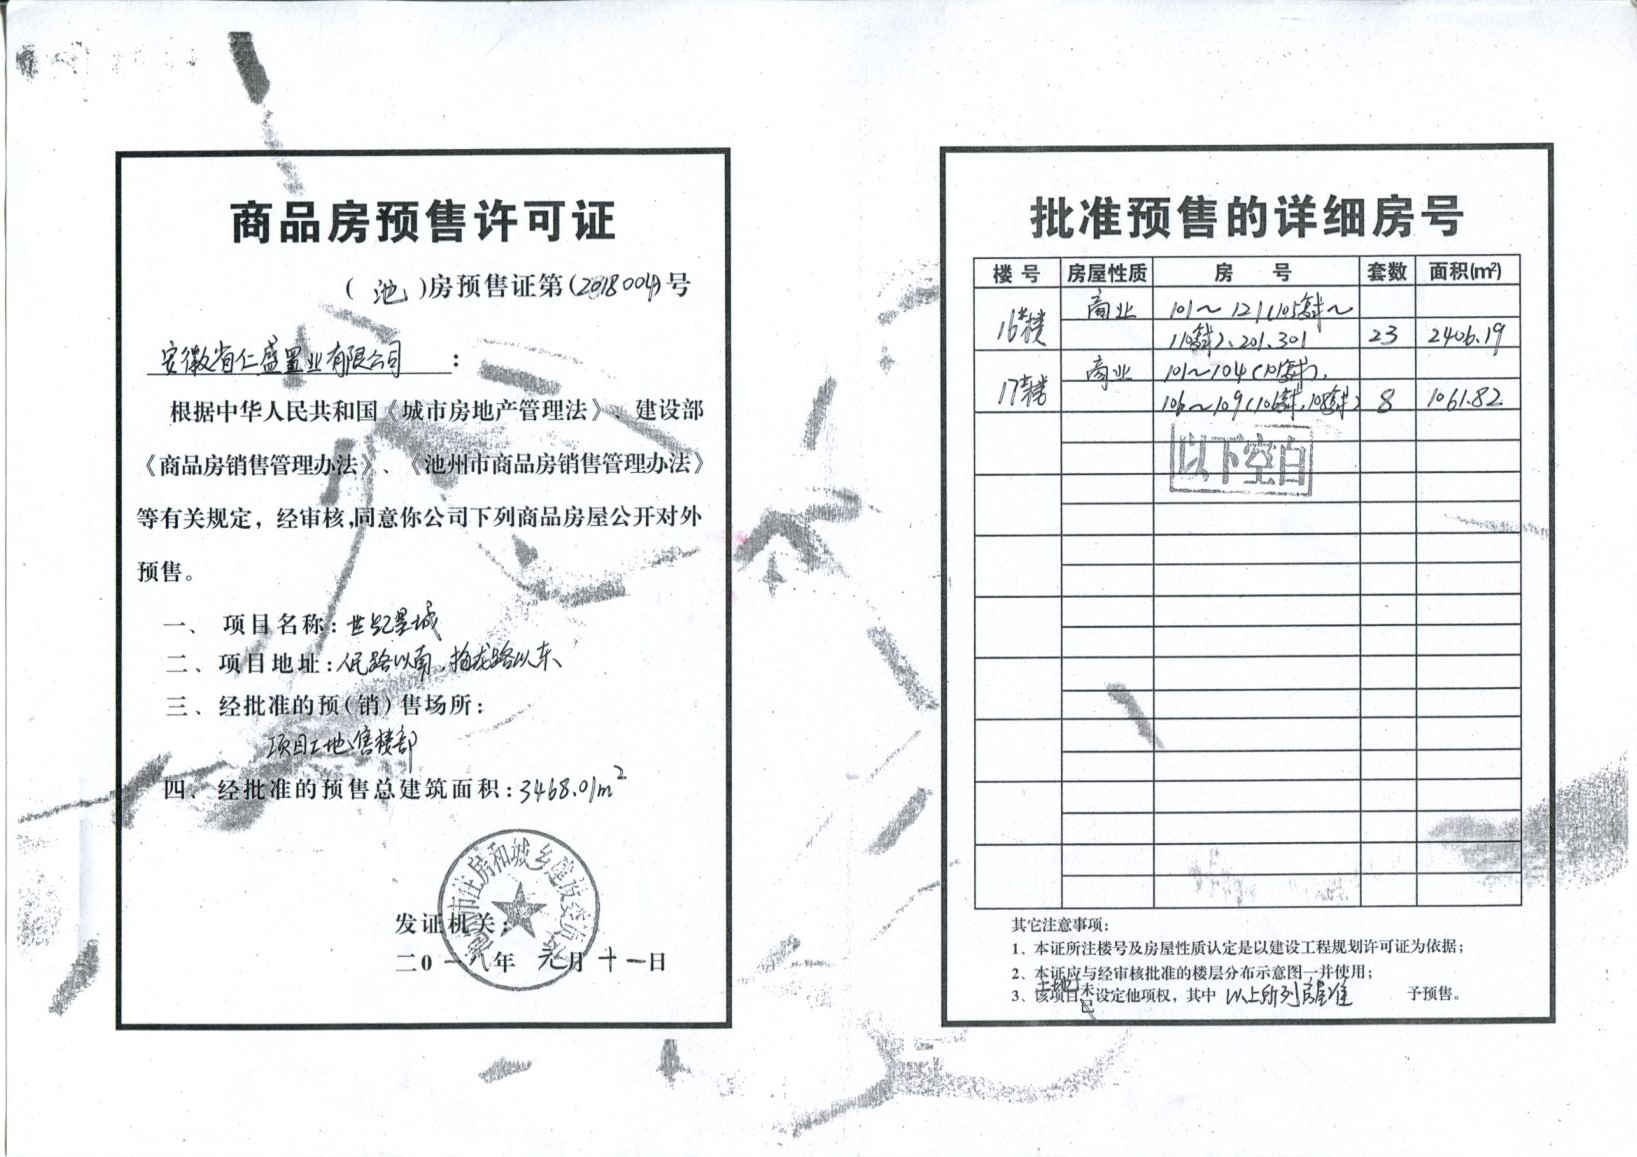 商品房预售许可证
（池）房预售证第（2018004）号
安徽省仁盛置业有限公司：
根据中华人民共和国《城市房地产管理法》、建设部
《商品房销售管理办法》、《池州市商品房销售管理办法》
等有关规定，经审核，同意你公司下列商品房屋公开对外
预售。
一、项目名称：世纪星城
二、项目地址：人民路以南、拖龙路以东
三、经批准的预（销）售场所：
项目工地售楼部
四、经批准的预售总建筑面积：3468.01m²
市住房和城乡建设委员会
发证机关：
二0一八年元月十一日
批准预售的详细房号
楼号 房屋性质 房号 套数 面积(m²)
16#楼 商业 101～121(105套～
110套)、201、301 23 2406.19
17#楼 商业 101～104(101套),
106～109(106套,108套) 8 1061.82
以下空白
其它注意事项：
1、本证所注楼号及房屋性质认定是以建设工程规划许可证为依据；
2、本证应与经审核批准的楼层分布示意图一并使用；
土地 已
3、该项目未设定他项权，其中以上所列房屋准予预售。